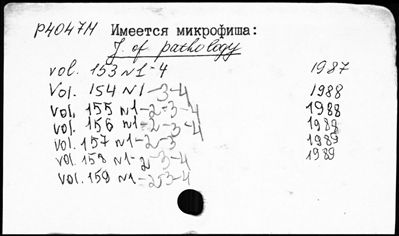 P4047M Имеется микрофиша:
J. of pathology
vol. 153 N1-4 1987
Vol. 154 N1-3-4 1988
Vol. 155 N1-2-3-4 1988
Vol. 156 N1-2-3-4 1989
Vol. 157 N1-2-3 1989
Vol. 158 N1-2-3-4 1989
Vol. 159 N1-2-3-4